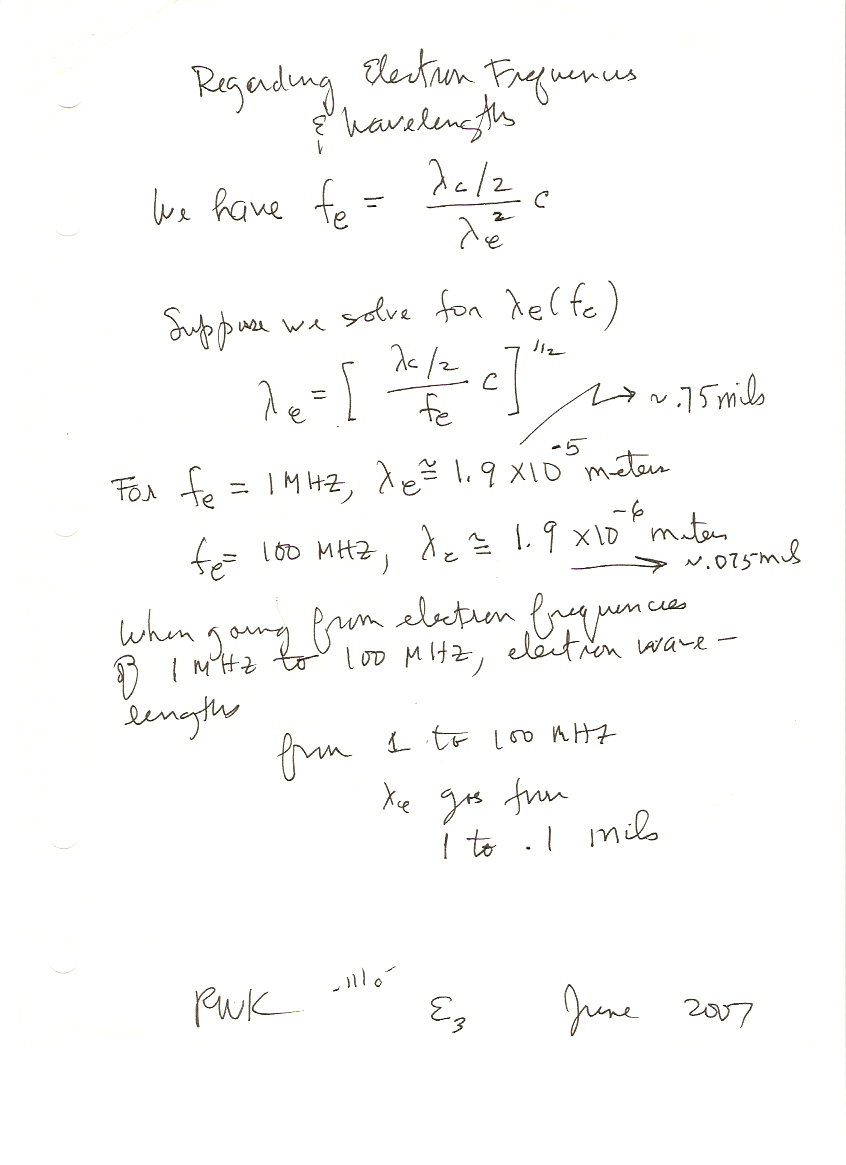 Regarding Electron Frequencies
& Wavelengths
We have fe = λc/2 / λe² c
Suppose we solve for λe(fe)
λe = [ λc/2 / fe c ]^1/2
~.75 mils
For fe = 1 MHZ, λe ≅ 1.9 X10^-5 meters
fe = 100 MHZ, λe ≅ 1.9 x10^-6 meters
~.075 mil
When going from electron frequencies
of 1 MHz to 100 MHZ, electron wave-
lengths
from 1 to 100 MHZ
λe goes from
1 to .1 mils
RWK E3 June 2007